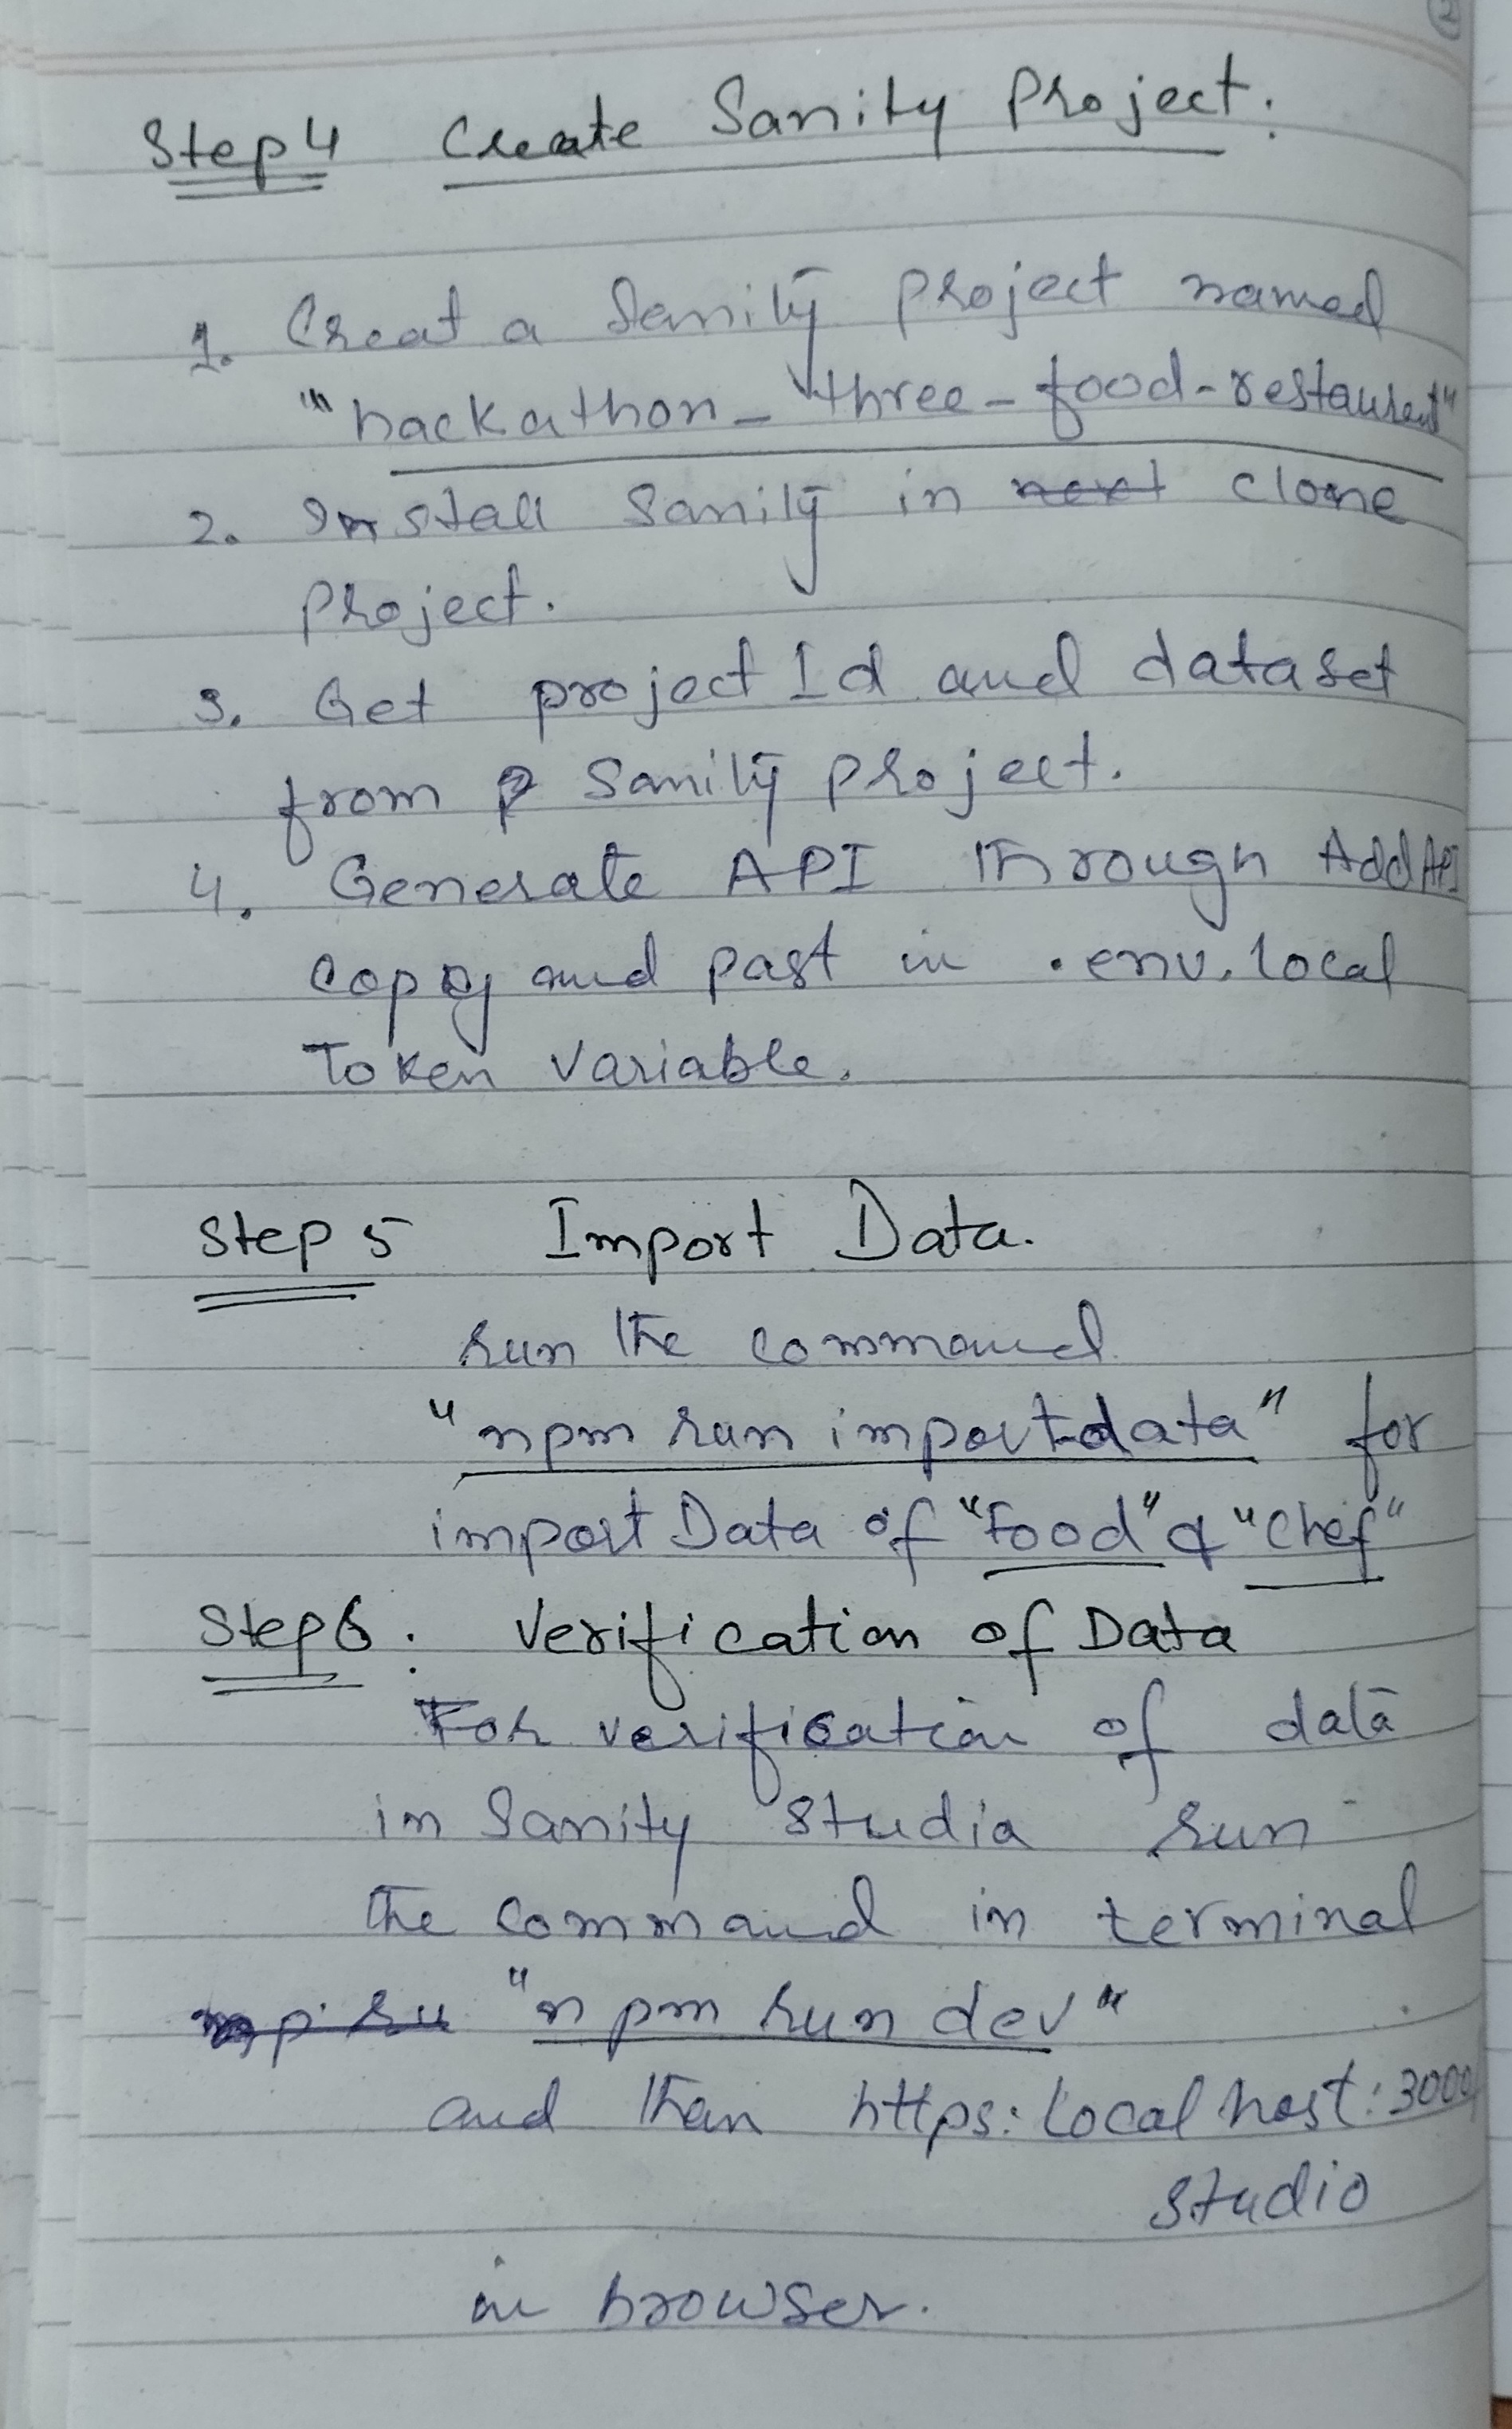 Step 4 Create Sanity Project:
1. Creat a Sanity project named
"hackathon-three-food-restaurent"
2. Install Sanity in next clone
project.
3. Get project Id and dataset
from Sanity project.
4. Generate API through Add API
copy and past in .env.local
Token variable.
Step 5 Import Data.
run the command
"npm run import-data" for
import Data of "Food" & "Chef"
Step 6: Verification of Data
For verification of data
in Sanity Studio run
the command in terminal
"npm run dev"
and then https:localhost:3000/
studio
in browser.